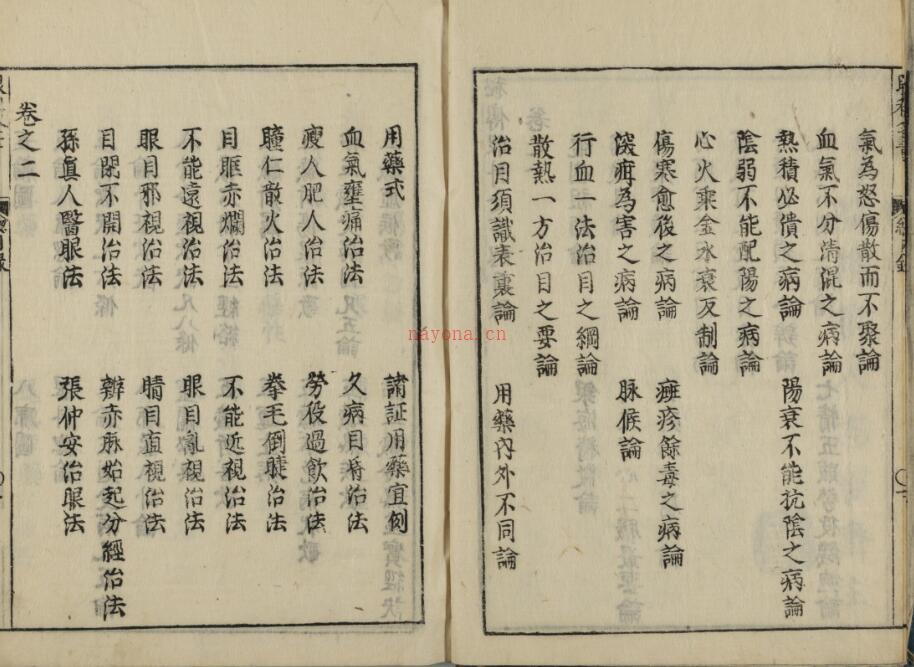 氣為怒傷散而不聚論
血氣不分清混之病論
熱積必潰之病論 陽衰不能抗陰之病論
陰弱不能配陽之病論
心火乘金水衰反制論
傷寒愈後之病論 癍疹餘毒之病論
深疳為害之病論 脉候論
行血一法治目之綱論
散熱一方治目之要論
治目須識表裏論 用藥內外不同論
用藥式 諸証用藥宜例
血氣壅痛治法 久病目昏治法
瘦人肥人治法 勞役過飲治法
瞳仁散火治法 拳毛倒睫治法
目眶赤爛治法 不能近視治法
不能遠視治法 眼目亂視治法
眼目邪視治法 睛目直視治法
目閉不開治法 辨赤脉始起分經治法
孫真人醫眼法 張仲安治眼法
卷之二
nayona.cn